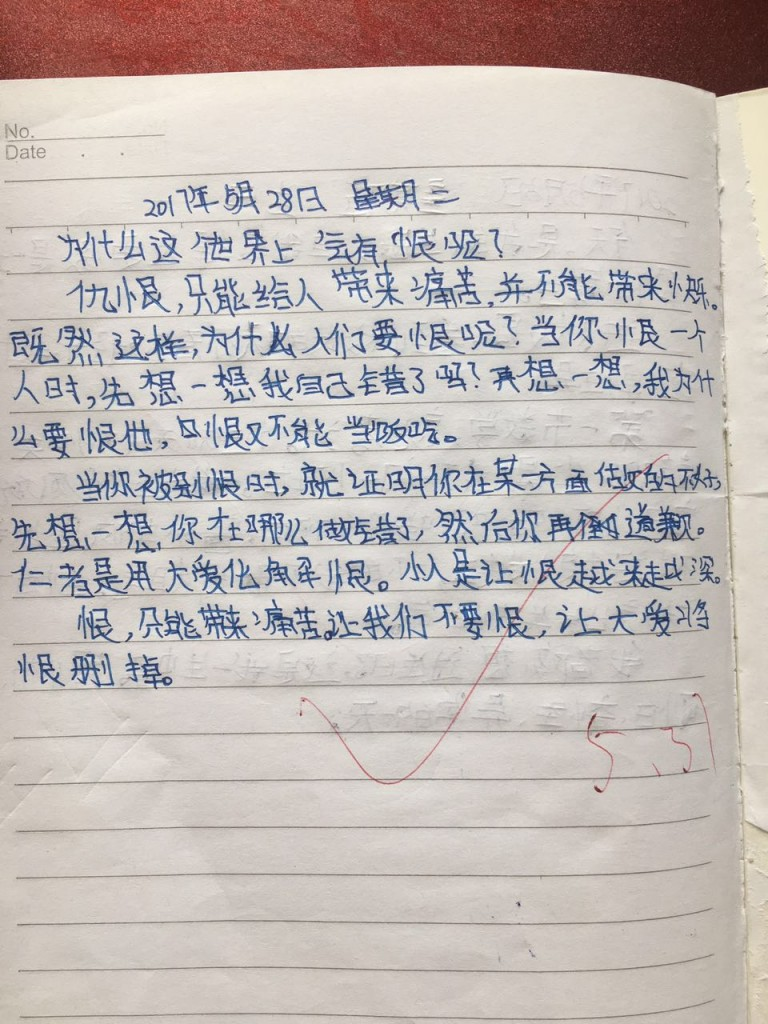 No.
Date
2017年5月28日 星期二
为什么这个世界上会有恨呢?
仇恨,只能给人带来痛苦,并不能带来快乐。
既然这样,为什么人们要恨呢?当你恨一个
人时,先想一想我自己错了吗?再想一想,我为什
么要恨他,口恨又不能当饭吃。
当你被别恨时,就证明你在某方面做的不好,
先想一想,你在哪么做错了,然后你再道歉。
仁者是用大爱化解恨。小人是让恨越来越深。
恨,只能带来痛苦。让我们不要恨,让大爱将
恨删掉。
5.31